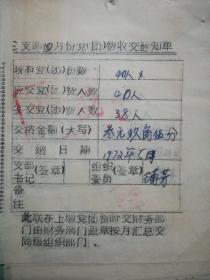 支部四月份党(团)费收交通知单
现有党(团)员数 40人
应交党(团)费人数 40人
实交党(团)费人数 38人
交纳金额(大写) 叁元玖角伍分
交纳日期 1972年5月
支部书记(签章) 组织委员(签章)
备注
此联在上缴党团费时交财务部
门由财务部门盖章按月汇总交
同级组织部门。